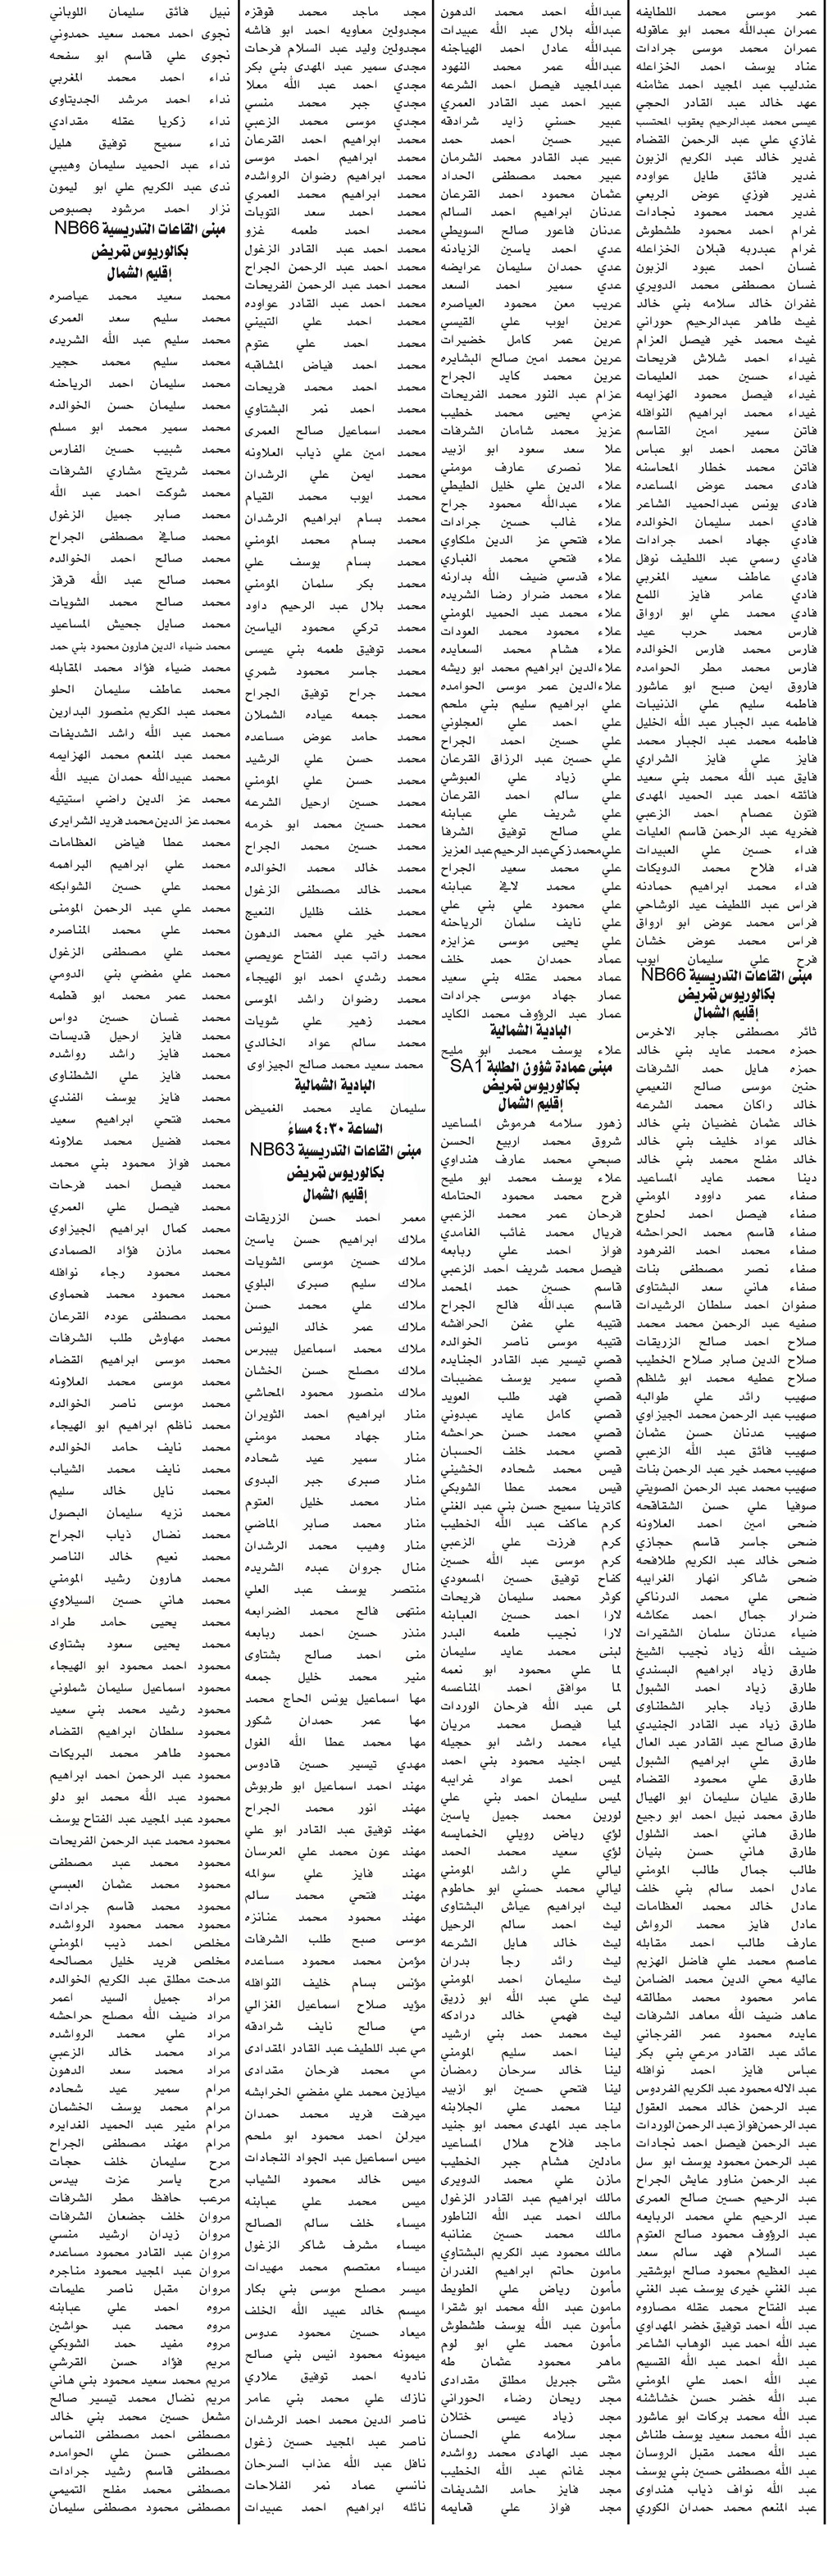 عمر موسى محمد اللطايفه
عمران عبدالله محمد ابو عاقوله
عمران محمد موسى جرادات
عناد يوسف احمد الخزاعله
عندليب عبد المجيد احمد عثامنه
عهد خالد عبد القادر الحجي
عيسى محمد عبدالرحيم يعقوب المحتسب
غازي علي عبد الرحمن القضاه
غدير خالد عبد الكريم الزبون
غدير فائق طايل عواوده
غدير فوزي عوض الربعي
غدير محمد محمود نجادات
غرام احمد محمود طشطوش
غرام عبدربه قبلان الخزاعله
غسان احمد عبود الزبون
غسان مصطفى محمد الدويري
غفران خالد سلامه بني خالد
غيث طاهر عبدالرحيم حوراني
غيث محمد خير فيصل العزام
غيداء احمد شلاش فريحات
غيداء حسين حمد العليمات
غيداء فيصل محمود الهزايمه
غيداء محمد ابراهيم النوافله
فاتن سمير امين القاسم
فاتن محمد احمد ابو عباس
فاتن محمد خطار المحاسنه
فادي محمد عوض المساعده
فادي يونس عبدالحميد الشاعر
فادي احمد سليمان الخوالده
فادي جهاد احمد جرادات
فادي رسمي عبد اللطيف نوفل
فادي عاطف سعيد المغربي
فادي عامر فايز اللمع
فادي محمد علي ابو ارواق
فارس محمد حرب عيد
فارس محمد فارس الخوالده
فارس محمد مطر الحوامده
فاروق ايمن صبح ابو عاشور
فاطمه سليم علي الذنيبات
فاطمه عبد الجبار عبد الله الخليل
فاطمه محمد عبد الجبار محمد
فايز علي فايز الشراري
فايق عبد الله محمد بني سعيد
فائقه احمد عبد الحميد المهدي
فتون عصام احمد الزعبي
فخريه عبد الرحمن قاسم العليات
فداء حسين علي العبيدات
فداء فلاح محمد الدويكات
فداء محمد ابراهيم حمادنه
فراس عبد اللطيف عيد الوشاحي
فراس محمد عوض ابو ارواق
فراس محمد عوض خشان
فرح علي سليمان ايوب
مبنى القاعات التدريسية NB66
بكالوريوس تمريض
إقليم الشمال
ثائر مصطفى جابر الاخرس
حمزه محمد عايد بني خالد
حمزه هايل حمد الشرفات
حنين موسى صالح النعيمي
خالد راكان محمد الشرعه
خالد عثمان غضيان بني خالد
خالد عواد خليف بني خالد
خالد مفلح محمد بني خالد
دينا محمد عايد المساعيد
صفاء عمر داوود المومني
صفاء فيصل احمد لحلوح
صفاء قاسم محمد الحراحشه
صفاء محمد احمد الفرهود
صفاء نصر مصطفى بنات
صفاء هاني سعد البشتاوى
صفوان احمد سلطان الرشيدات
صفيه عبد الرحمن محمد محمد
صلاح احمد صالح الزريقات
صلاح الدين صابر صلاح الخطيب
صلاح عطيه محمد ابو شلظم
صهيب رائد علي طوالبه
صهيب عبد الرحمن محمد الجيزاوي
صهيب عدنان حسن عثمان
صهيب فائق عبد الله الزعبي
صهيب محمد خير عبد الرحمن بنات
صهيب محمد عبد الرحمن الصويتي
صوفيا علي حسن الشقاقحه
ضحى امين احمد العلاونه
ضحى جاسر قاسم حجازي
ضحى خالد عبد الكريم طلافحه
ضحى شاكر انهار الغرايبه
ضحى علي محمد الدرناكي
ضرار جمال احمد عكاشه
ضياء عدنان سلمان الشقيرات
ضيف الله زياد نجيب الشيخ
طارق زياد ابراهيم البسندي
طارق زياد احمد الشبول
طارق زياد جابر الشطناوى
طارق زياد عبد القادر الجنيدي
طارق صالح عبد القادر عبد العال
طارق علي ابراهيم الشبول
طارق علي محمود القضاه
طارق عليان سليمان ابو الهيال
طارق محمد نبيل احمد ابو رجيع
طارق هاني احمد الشلول
طارق هاني حسن بنيان
طالب جمال طالب المومني
عادل احمد سالم بني خلف
عادل خالد محمد العظامات
عادل فايز محمد الرواش
عارف طالب احمد مقابله
عاصم محمد علي فاضل الهزيم
عاليه محي الدين محمد الضامن
عامر محمود محمد مطالقه
عاهد ضيف الله معاهد الشرفات
عايده محمود عمر الفرجاني
عائد عبد القادر مرعي بني بكر
عباس فايز احمد نوافله
عبد الاله محمود عبد الكريم الفردوس
عبد الرحمن خالد محمد العقول
عبد الرحمن فواز عبد الرحمن الوردات
عبد الرحمن فيصل احمد نجادات
عبد الرحمن محمود يوسف ابو سل
عبد الرحمن مناور عايش الجراح
عبد الرحيم حسين صالح العمرى
عبد الرحيم علي محمد الربايعه
عبد الرؤوف محمود صالح العتوم
عبد السلام فهد سالم سعد
عبد العظيم محمود صالح ابوشقير
عبد الغني خيرى يوسف عبد الغني
عبد الفتاح محمد عقله مصاروه
عبد الله احمد توفيق خضر المهداوي
عبد الله احمد عبد الوهاب الشاعر
عبد الله احمد عبد الله القسيم
عبد الله احمد علي المومني
عبد الله خضر حسن خشاشنه
عبد الله محمد بركات ابو عاشور
عبد الله محمد سعيد يوسف طناش
عبد الله محمد مقبل الروسان
عبد الله مصطفى حسين بني يوسف
عبد الله نواف ذياب هنداوى
عبد المنعم محمد حمدان الكوري
عبدالله احمد محمد الدهون
عبدالله بلال عبد الله عبيدات
عبدالله عادل احمد الهياجنه
عبدالله عمر محمد النهود
عبدالمجيد فيصل احمد الشرعه
عبير احمد عبد القادر العمري
عبير حسني زايد شرادقه
عبير حسين احمد حمد
عبير عبد القادر محمد الشرمان
عبير محمد مصطفى الحداد
عثمان محمود احمد القرعان
عدنان ابراهيم احمد السالم
عدنان فاعور صالح السويطي
عدي احمد ياسين الزيادنه
عدي حمدان سليمان عرايضه
عدي سمير احمد السعد
عريب معن محمود العياصره
عرين ايوب علي القيسي
عرين عمر كامل خضيرات
عرين محمد امين صالح البشايره
عرين محمد كايد الجراح
عزام عبد النور محمد الفريحات
عزمي يحيى محمد خطيب
عزيز محمد شامان الشرفات
علا سعد سعود ابو ازبيد
علاء نصرى عارف مومني
علاء الدين علي خليل الطيطي
علاء عبدالله محمود جراح
علاء غالب حسين جرادات
علاء فتحي عز الدين ملكاوي
علاء فتحي محمد الغباري
علاء قدسي ضيف الله بدارنه
علاء محمد ضرار رضا الشريده
علاء محمد عبد الحميد المومني
علاء محمود محمد العودات
علاء هشام محمد السعايده
علاءالدين ابراهيم محمد ابو ريشه
علاءالدين عمر موسى الحوامده
علي ابراهيم سليم بني ملحم
علي احمد علي العجلوني
علي حسين احمد الجراح
علي حسين عبد الرزاق القرعان
علي زياد علي العبوشي
علي سالم احمد القرعان
علي شريف علي عبابنه
علي صالح توفيق الشرفا
علي محمد زكي عبد الرحيم عبد العزيز
علي محمد سعيد الجراح
علي محمد لافي عبابنه
علي محمود علي بني علي
علي نايف سلمان الرياحنه
علي يحيى موسى عزايزه
عماد حمدان حمد خلف
عماد محمد عقله بني سعيد
عمار جهاد موسى جرادات
عمار عبد الرؤوف محمد الكايد
البادية الشمالية
علاء يوسف محمد ابو مليح
مبنى عمادة شؤون الطلبة SA1
بكالوريوس تمريض
إقليم الشمال
زهور سلامه هرموش المساعيد
شروق محمد اربيع الحسن
صبحي محمد عارف هنداوي
علاء يوسف محمد ابو مليح
فرح محمد محمود الحتامله
فرحان عمر محمد الزعبي
فريال محمد غائب الغامدي
فواز احمد علي ربابعه
فيصل محمد شريف احمد الزعبي
قاسم حسين حمد المحمد
قاسم عبدالله فالح الجراح
قتيبه علي عفن الحرافشه
قتيبه موسى ناصر الخوالده
قصي تيسير عبد القادر الجنايده
قصي سمير يوسف عضيبات
قصي فهد طلب العويد
قصي كامل عايد عبدوني
قصي محمد حسن حراحشه
قصي محمد خلف الحسبان
قيس محمد شحاده الخشيني
قيس محمد عطا الشوبكي
كاترينا سميح حسن بني عبد الغني
كرم عاكف عبد الله الخطيب
كرم فرزت علي الزعبي
كرم موسى عبد الله حسين
كفاح توفيق حسين المسعودي
كوثر محمد سليمان فريحات
لارا احمد حسين العبابنه
لارا نجيب طعمه البدر
لبنى محمد عايد سليمان
لما علي محمود ابو نعمه
لما موافق احمد المناعسه
لمى عبد الله فرحان الوردات
لميا فيصل محمد مريان
لمياء محمد راشد ابو حجيله
لميس اجنيد محمود بني احمد
لميس احمد عواد غرايبه
لميس سليمان احمد بني علي
لورين محمد جميل ياسين
لؤي رياض رويلي الخمايسه
لؤي سعيد محمد الحمد
ليالي علي راشد المومني
ليالي محمد حسني ابو حاطوم
ليث ابراهيم عياش البشتاوى
ليث احمد سالم الرحيل
ليث خالد هايل الشرعه
ليث رائد رجا بدران
ليث سليمان احمد المومني
ليث علي عبد الله ابو زريق
ليث فهمي خالد درادكه
ليث محمد حمد بني ارشيد
لينا احمد سليم المومني
لينا خالد سرحان رمضان
لينا فتحي حسين ابو ازبيد
لينا محمد علي الجلابنه
ماجد عبد المهدى محمد ابو جنيد
ماجد فلاح هلال المساعيد
مادلين هشام جبر الخطيب
مازن علي محمد الدويرى
مالك ابراهيم عبد القادر الزغول
مالك احمد عبد الله الناطور
مالك محمد حسين عتانبه
مالك محمود عبد الكريم البشتاوي
مامون حاتم ابراهيم الغدران
مأمون رياض علي الطويط
مأمون عبد الله محمد ابو شقرا
مأمون عبد الله يوسف طشطوش
مأمون محمد علي ابو لوم
ماهر محمود عثمان طه
مثنى جبريل مطلق مقدادى
مجد ريحان رضاء الحوراني
مجد زياد عيسى ختلان
مجد سلامه علي الحسان
مجد عبد الهادى محمد رواشده
مجد غانم عبد الله الخطيب
مجد فايز حامد الشديفات
مجد فواز علي قعايمه
مجد ماجد محمد قوقزه
مجدولين معاويه احمد ابو فاشه
مجدولين وليد عبد السلام فرحات
مجدى سمير عبد المهدى بني بكر
مجدي احمد عبد الله معلا
مجدي جبر محمد منسي
مجدي موسى محمد الزعبي
محمد ابراهيم احمد القرعان
محمد ابراهيم احمد موسى
محمد ابراهيم رضوان الرواشده
محمد ابراهيم محمد العمري
محمد احمد سعد التوبات
محمد احمد طعمه غزو
محمد احمد عبد القادر الزغول
محمد احمد عبد الرحمن الجراح
محمد احمد عبد الرحمن الفريحات
محمد احمد عبد القادر عواوده
محمد احمد علي التبيني
محمد احمد علي عتوم
محمد احمد فياض المشاقبه
محمد احمد محمد فريحات
محمد احمد نمر البشتاوي
محمد اسماعيل صالح العمرى
محمد امين علي ذياب العلاونه
محمد ايمن علي الرشدان
محمد ايوب محمد القيام
محمد بسام ابراهيم الرشدان
محمد بسام محمد المومني
محمد بسام يوسف علي
محمد بكر سلمان المومني
محمد بلال عبد الرحيم داود
محمد تركي محمود الياسين
محمد توفيق طعمه بني عيسى
محمد جاسر محمود شمري
محمد جراح توفيق الجراح
محمد جمعه عياده الشملان
محمد حامد عوض مساعده
محمد حسن علي الرشيد
محمد حسن علي المومني
محمد حسين ارحيل الشرعه
محمد حسين محمد ابو خرمه
محمد حسين محمد الجراح
محمد خالد محمد الخوالده
محمد خالد مصطفى الزغول
محمد خلف ظليل النعيج
محمد خير علي محمد الدهون
محمد راتب عبد الفتاح عويصي
محمد رشدي احمد ابو الهيجاء
محمد رضوان راشد الموسى
محمد زهير علي شويات
محمد سالم عواد الخالدي
محمد سعيد محمد صالح الجيزاوى
البادية الشمالية
سليمان عايد محمد الغميض
الساعة ٤:٣٠ مساءً
مبنى القاعات التدريسية NB63
بكالوريوس تمريض
إقليم الشمال
معمر احمد حسن الزريقات
ملاك ابراهيم حسن ياسين
ملاك حسين موسى الشويات
ملاك سليم صبرى البلوي
ملاك علي محمد حسن
ملاك عمر خالد اليونس
ملاك محمد اسماعيل بيبرس
ملاك مصلح حسن الخشان
ملاك منصور محمود المحاشي
منار ابراهيم احمد الثويران
منار جهاد محمد مومني
منار سمير عيد شحاده
منار صبرى جبر البدوى
منار محمد خليل العتوم
منار محمد صابر الماضي
منار وهيب محمد الرشدان
منال جروان عبده الشريده
منتصر يوسف عبد العلي
منتهى فالح محمد الضرابعه
منذر حسين احمد ربابعه
منى احمد صالح بشتاوى
منير محمد خليل جمعه
مها اسماعيل يونس الحاج محمد
مها عمر حمدان شكور
مها محمد عطا الله الغول
مهدي تيسير حسين قادوس
مهند احمد اسماعيل ابو طربوش
مهند انور محمد الجراح
مهند توفيق عبد القادر ابو علي
مهند عون محمد علي العرسان
مهند فايز علي سوالمه
مهند فتحي محمد سالم
مهند محمود محمد عنانزه
موسى صبح طلب الشرفات
مؤمن محمد محمود مساعده
مؤنس بسام خليف النوافله
مؤيد صلاح اسماعيل الغزالي
مي صالح نايف شرادقه
مي عبد اللطيف عبد القادر المقدادى
مي محمد فرحان مقدادى
ميازين محمد علي مفضي الخرابشه
ميرفت فريد محمد حمدان
ميرلن احمد محمود ابو ملحم
ميس اسماعيل عبد الجواد النجادات
ميس خالد محمود الشياب
ميس محمد علي عبابنه
ميساء خلف سالم الصالح
ميساء مشرف شاكر الزغول
ميساء معتصم محمد مهيدات
ميسر مصلح موسى بني بكار
ميسم خالد عبيد الله الخلف
ميعاد حسين محمود عدوس
ميمونه محمود انيس بني صالح
ناديه احمد توفيق علاري
نازك علي محمد بني عامر
ناصر الدين محمد احمد الرشدان
ناصر عبد المجيد حسين زغول
نافل عبد الله عذاب السرحان
نانسي عماد نمر الفلاحات
نائله ابراهيم احمد عبيدات
نبيل فائق سليمان اللوباني
نجوى احمد محمد سعيد حمدوني
نجوى علي قاسم ابو سفحه
نداء احمد محمد المغربي
نداء احمد مرشد الجديتاوى
نداء زكريا عقله مقدادي
نداء سميح توفيق هليل
نداء عبد الحميد سليمان وهيبي
ندى عبد الكريم علي ابو ليمون
نزار احمد مرشود بصبوص
مبنى القاعات التدريسية NB66
بكالوريوس تمريض
إقليم الشمال
محمد سعيد محمد عياصره
محمد سليم سعد العمرى
محمد سليم عبد الله الشريده
محمد سليم محمد حجير
محمد سليمان احمد الرياحنه
محمد سليمان حسن الخوالده
محمد سمير محمد ابو مسلم
محمد شبيب حسين الفارس
محمد شريتح مشاري الشرفات
محمد شوكت احمد عبد الله
محمد صابر جميل الزغول
محمد صافي مصطفى الجراح
محمد صالح احمد الخوالده
محمد صالح عبد الله قرقز
محمد صالح محمد الشويات
محمد صايل جحيش المساعيد
محمد ضياء الدين هارون محمود بني حمد
محمد ضياء فؤاد محمد المقابله
محمد عاطف سليمان الحلو
محمد عبد الكريم منصور البدارين
محمد عبد الله راشد الشديفات
محمد عبد المنعم محمد الهزايمه
محمد عبيدالله حمدان عبيد الله
محمد عز الدين راضي استيتيه
محمد عز الدين محمد فريد الشرايرى
محمد عطا فياض العظامات
محمد علي ابراهيم البراهمه
محمد علي حسين الشوابكه
محمد علي عبد الرحمن المومنى
محمد علي محمد المناصره
محمد علي مصطفى الزغول
محمد علي مفضي بني الدومي
محمد عمر محمد ابو قطمه
محمد غسان حسين دواس
محمد فايز ارحيل قديسات
محمد فايز راشد رواشده
محمد فايز علي الشطناوى
محمد فايز يوسف الفندي
محمد فتحي ابراهيم سعيد
محمد فضيل محمد علاونه
محمد فواز محمود بني محمد
محمد فيصل احمد فرحات
محمد فيصل علي العمري
محمد كمال ابراهيم الجيزاوى
محمد مازن فؤاد الصمادى
محمد محمود رجاء نوافله
محمد محمود محمد فحماوى
محمد مصطفى عوده القرعان
محمد مهاوش طلب الشرفات
محمد موسى ابراهيم القضاه
محمد موسى محمد العلاونه
محمد موسى ناصر الخوالده
محمد ناظم ابراهيم ابو الهيجاء
محمد نايف حامد الخوالده
محمد نايف محمد الشياب
محمد نايل خالد سليم
محمد نزيه سليمان البصول
محمد نضال ذياب الجراح
محمد نعيم خالد الناصر
محمد هارون رشيد المومني
محمد هاني حسين السيلاوي
محمد يحيى حامد طراد
محمد يحيى سعود بشتاوى
محمود احمد محمود ابو الهيجاء
محمود اسماعيل سليمان شملوني
محمود رشيد محمد بني سعيد
محمود سلطان ابراهيم القضاه
محمود طاهر محمد البريكات
محمود عبد الرحمن احمد ابراهيم
محمود عبد الله محمد ابو دلو
محمود عبد المجيد عبد الفتاح يوسف
محمود محمد عبد الرحمن الفريحات
محمود محمد عبد مصطفى
محمود محمد عثمان العبسي
محمود محمد قاسم جرادات
محمود محمد محمود الرواشده
مخلص احمد ذيب المومني
مخلص فريد خليل مصالحه
مدحت مطلق عبد الكريم الخوالده
مراد جميل السيد اعمر
مراد ضيف الله مصلح حراحشه
مراد علي محمد الرواشده
مراد محمد خالد الزعبي
مراد محمد سعد الدهون
مرام سمير عيد شحاده
مرام محمد يوسف الخشمان
مرام منير عبد الحميد الغدايره
مرام مهند مصطفى الجراح
مرح سليمان خلف حجات
مرح ياسر عزت بيدس
مرعب حافظ مطر الشرفات
مروان خلف جضعان الشرفات
مروان زيدان ارشيد منسي
مروان عبد القادر محمود مساعده
مروان عبد المجيد محمود مناجره
مروان مقبل ناصر عليمات
مروه احمد علي عبابنه
مروه محمد عبد حواشين
مروه مفيد حمد الشوبكي
مريم فؤاد حسن القرشي
مريم محمد سعيد محمود بني هاني
مريم نضال محمد تيسير صالح
مشعل حسين محمد بني خالد
مصطفى احمد مصطفى النماس
مصطفى حسن علي الحوامده
مصطفى قاسم رشيد جرادات
مصطفى محمد مفلح التميمي
مصطفى محمود مصطفى سليمان